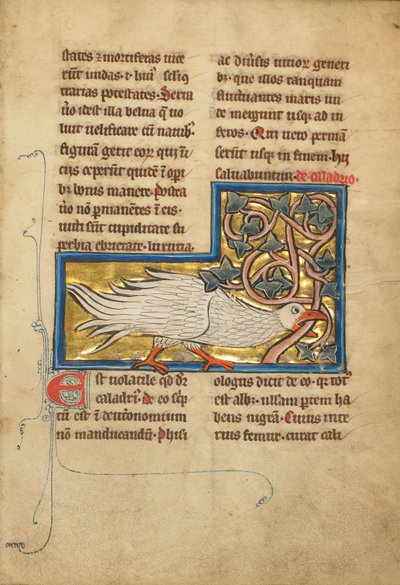 states ⁊ mortiferas uice
rũt undas. ⁊ huiꝰ sclĩ q̃
trarias potestates. Serra
ũo idest illa belua q̃ uo
luit uelificare cũ nauibꝰ
figurã gerit eorꝫ qui ĩ i
cijs ceperũt ⁊ opi
bꝫ bonis manere. Postea
ũo nõ pmanẽtes ĩ eis.
uicti sũt cupiditate su
perbia ebrietate. luxuria.
ac diũsis uitiorꝫ generi
bꝫ. que illos tanquam
fluctuantes maris un
de mergunt usqꝫ ad in
feros. Qui uero perman
serũt usqꝫ in finem. hij
saluabuntur. de caladrio.
Est uolatile qd dr̃
caladriꝰ. De eo scp
tũ est ĩ deutonomium
nõ manducandũ. Phisi
ologus dicit de eo. qꝫ totꝰ
est albꝰ. nllam partem ha
bens nigrã. Cuius inte
rius femur. curat cali